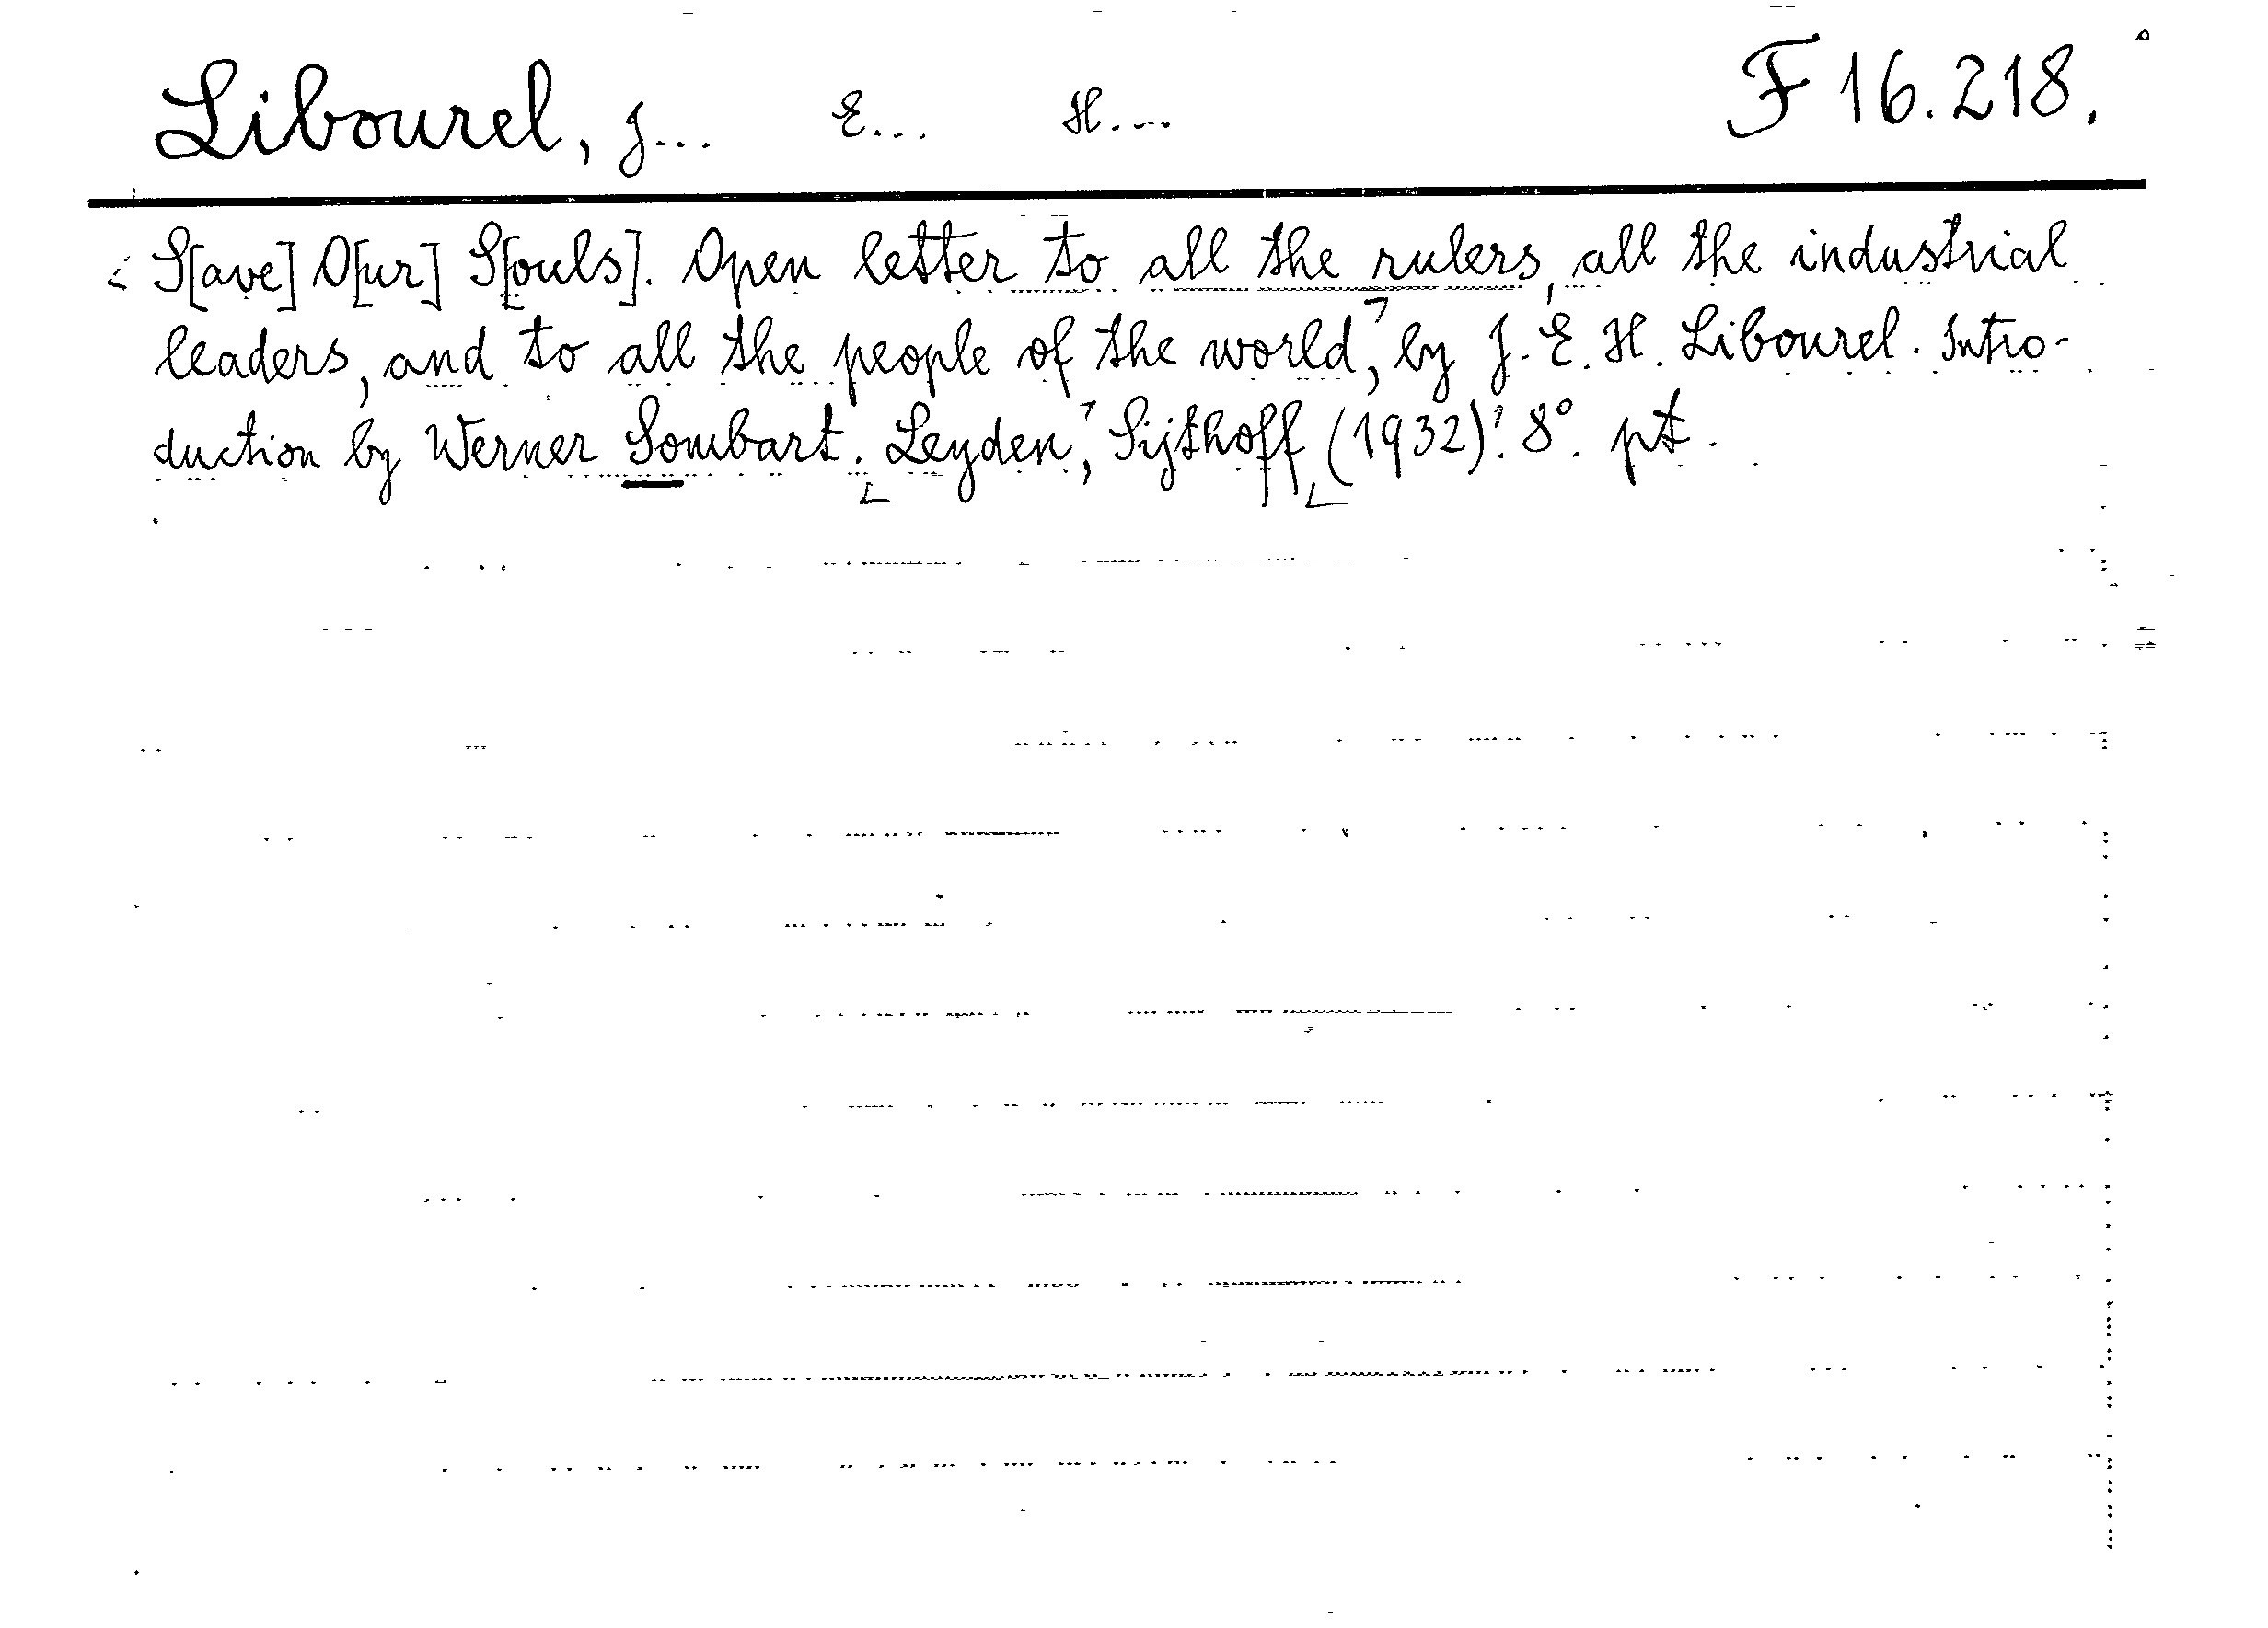 Libourel, J... E... H.... F 16.218.
S[ave] O[ur] S[ouls]. Open letter to all the rulers, all the industrial
leaders, and to all the people of the world, by J. E. H. Libourel. Intro-
duction by Werner Sombart. Leyden, Sijthoff (1932). 8°. pt.